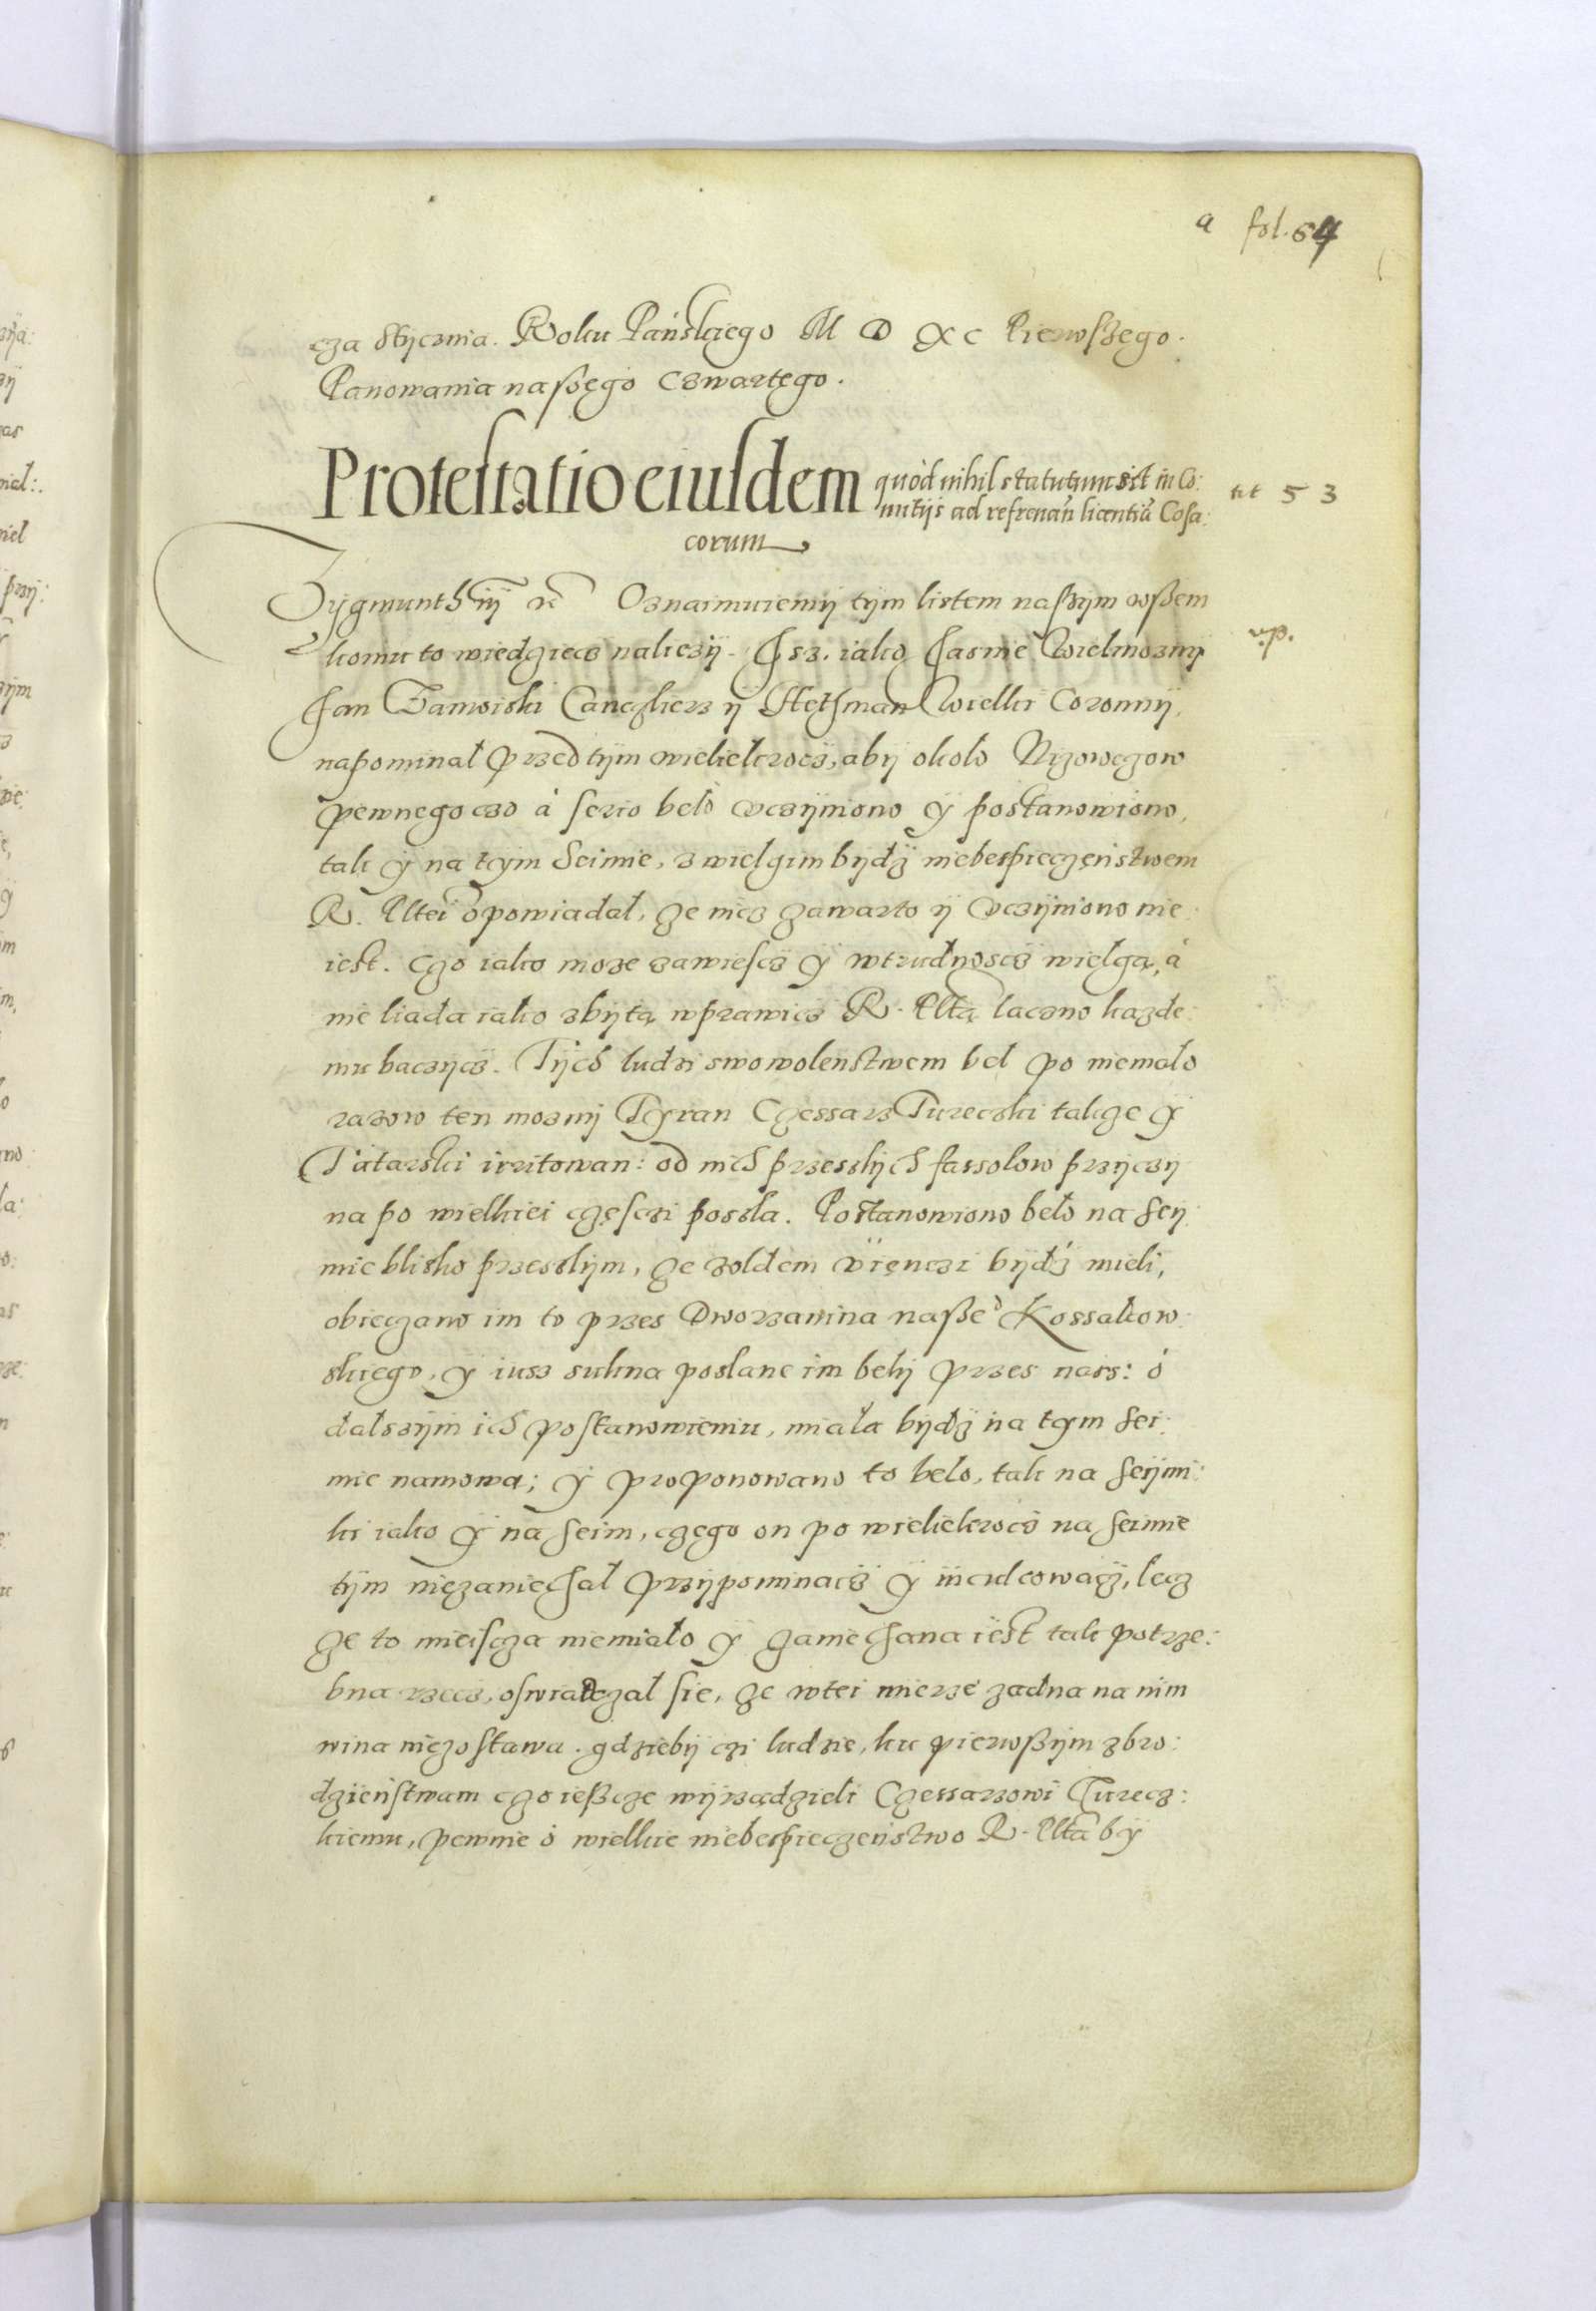 a fol. 64
cza Stycznia. Roku Pańskiego M D XC Pierwszego.
Panowania naszego Czwartego.
Protestatio eiusdem quòd nihil statutum sit in Co:
mitijs ad refrenan̄ licentiā Cosa:
corum
tit 53
Zÿgmunth iij &c Oznaimuiemÿ tÿm listem naszÿm wszem
komu to wiedziecz nalezÿ. Isz iako Iasnie Wielmoznÿ
v.p.
Jan Zamoiski Canczlierz ÿ Hethman Wielki Coronnÿ,
napominał przed tÿm wieliekrocz, abÿ około Nizowczow
pewnego czo à serio beło vczÿniono ÿ postanowiono,
tak ÿ na tÿm Seimie, z wielgim bÿdź niebespieczeństwem
R. Pltei opowiadał, ze nicz zawarto ÿ vczÿniono nie
iest. Czo iako moze zawiescz ÿ wtrudnoscz wielgą, à
nie liada iako zbÿtą wprawicz R. Pltą łaczno kazde:
mu baczÿcz. Tÿch ludzi swowolenstwem beł po niemało
razow ten moznÿ Tÿran Czessarz Tureczki takze ÿ
Tatarski irritowan: od nich przeszłÿch fassołow przÿczÿ
na po wielkiei częsczi poszła. Postanowiono beło na Seÿ
mie blisko przeszłÿm, ze zołdem vięnczi bÿdź mieli,
obieczano im to przes Dworzanina nasze° Kossakow:
skiego, ÿ iusz sukna posłane im belÿ przes nas: ò
dalszÿm ich postanowieniu, miała bÿdź na tÿm Sei:
mie namowa; ÿ proponowano to beło, tak na Seÿmi:
ki iako ÿ na Seim, czego on po wieliekrocz na Seimie
tÿm niezaniechał przÿpominacz ÿ inculcowacz, lecz
ze to mieiscza niemiało ÿ zaniechana iest tak potrze:
bna rzecz, oswiadczał sie, ze wtei mierze zadna na nim
wina niezostawa. gdziebÿ czi ludzie, ku pierwszÿm zbro:
dzieństwam czo ieszcze wÿrządzieli Czessarzowi Turecz:
kiemu, pewnie ò wielkie niebespieczeństwo R. Plta bÿ